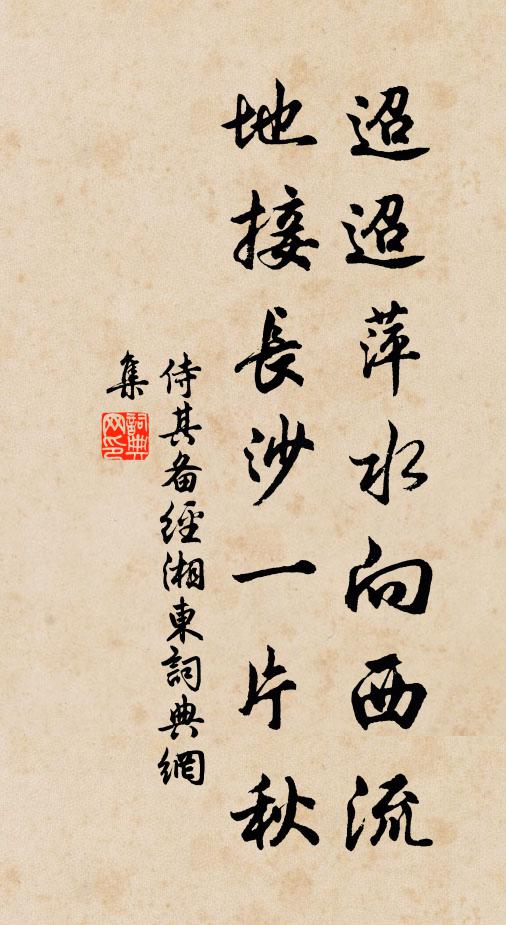 迢迢萍水向西流
地接長沙一片秋
侍其备經湘東詞典網
集
詞典
网印